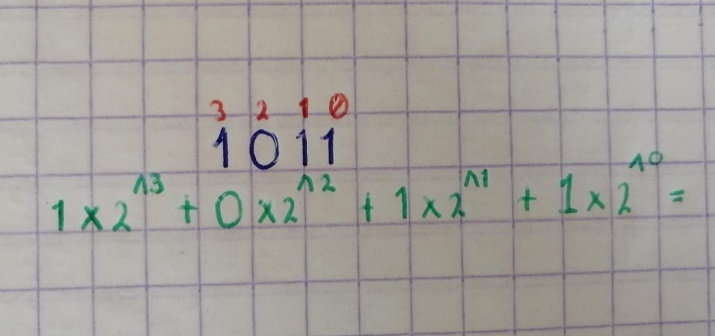 3 2 1 0
1011
1 x 2^3 + 0 x 2^2 + 1 x 2^1 + 1 x 2^0 =